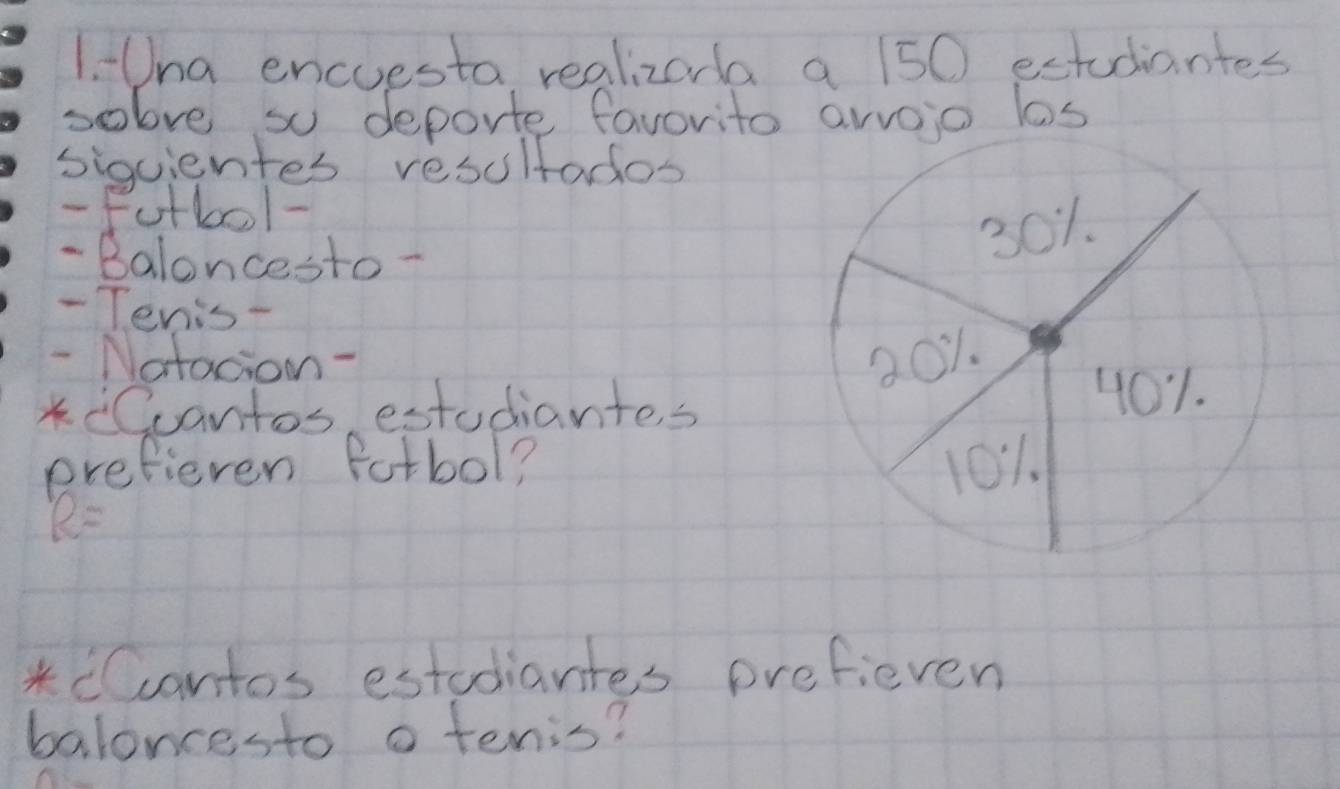 1.-Una encuesta realizada a 150 estudiantes
sobre su deporte favorito arrojo los
siguientes resultados
- Futbol -
- Baloncesto -
- Tenis -
- Natacion -
* ¿Cuantos estudiantes
prefieren futbol?
R=
30%.
20%.
40%.
10%.
* ¿Cuantos estudiantes prefieren
baloncesto o tenis?